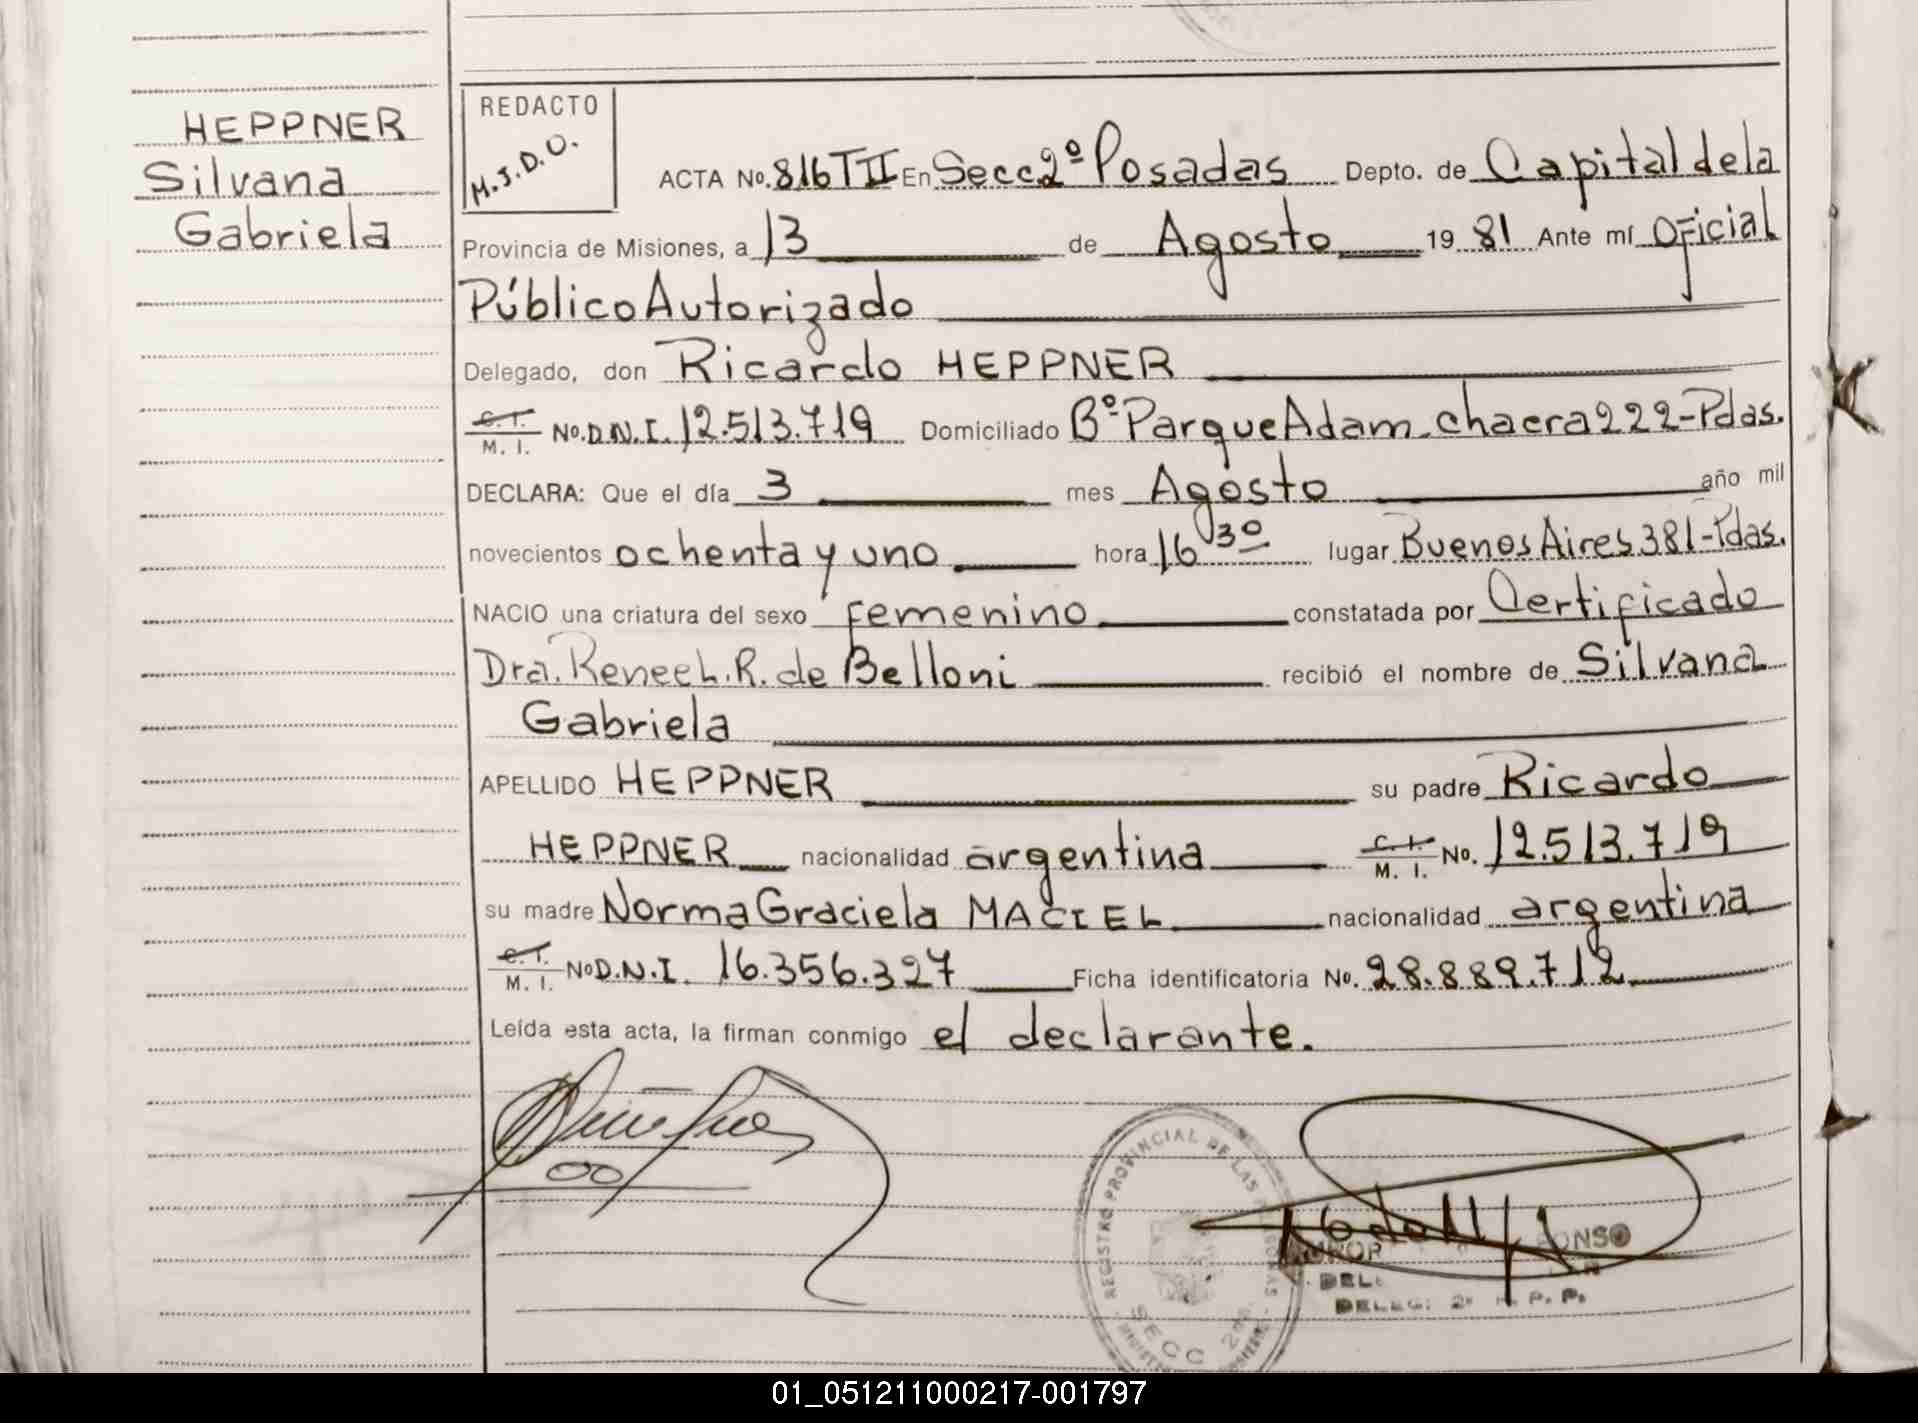 HEPPNER
Silvana
Gabriela
REDACTO
M.J.D.O.
ACTA No. 816 TII En Secc 2º Posadas Depto. de Capital de la
Provincia de Misiones, a 13 de Agosto 19 81 Ante mí Oficial
Público Autorizado
Delegado, don Ricardo HEPPNER
C. I. / M. I. No. D.N.I. 12.513.719 Domiciliado Bº Parque Adam. chacra 222-Pdas.
DECLARA: Que el día 3 mes Agosto año mil
novecientos ochenta y uno hora 16 30 lugar Buenos Aires 381-Pdas.
NACIO una criatura del sexo femenino constatada por Certificado
Dra. Renee L. R. de Belloni recibió el nombre de Silvana
Gabriela
APELLIDO HEPPNER su padre Ricardo
HEPPNER nacionalidad argentina C. I. / M. I. No. 12.513.719
su madre Norma Graciela MACIEL nacionalidad argentina
C. I. / M. I. No D.N.I. 16.356.327 Ficha identificatoria No. 28.889.712
Leída esta acta, la firman conmigo el declarante.
REGISTRO PROVINCIAL DE LAS PERSONAS
SECC 2da.
01_051211000217-001797